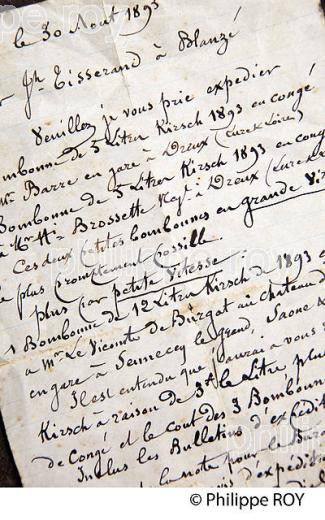 le 30 Aout 1893
Jh Tisserand à Blanzé
Veuillez je vous prie expedier
Bombonne de 5 Litres Kirsch 1893 en congé
Mr Barre en gare à Dreux (Eure & Loire)
Bombonne de 5 Litres Kirsch 1893 en congé
à Mr Brossette Negt à Dreux (Eure &
Ces deux petites bombonnes en grande Vit
le plus promptement possible.
plus (par petite Vitesse
1 Bombonne de 12 Litres Kirsch de 1893 e
a Mr Le Vicomte de Burgat au chateau d
en gare à Sennecey le grand, Saone &
Il est entendu que j'aurai a vous
Kirsch à raison de 3f le Litre, plus
de Congé et le cout des 3 Bombonn
Inclus les Bulletins d'expédit
la note pour le
d'expéditi
© Philippe ROY